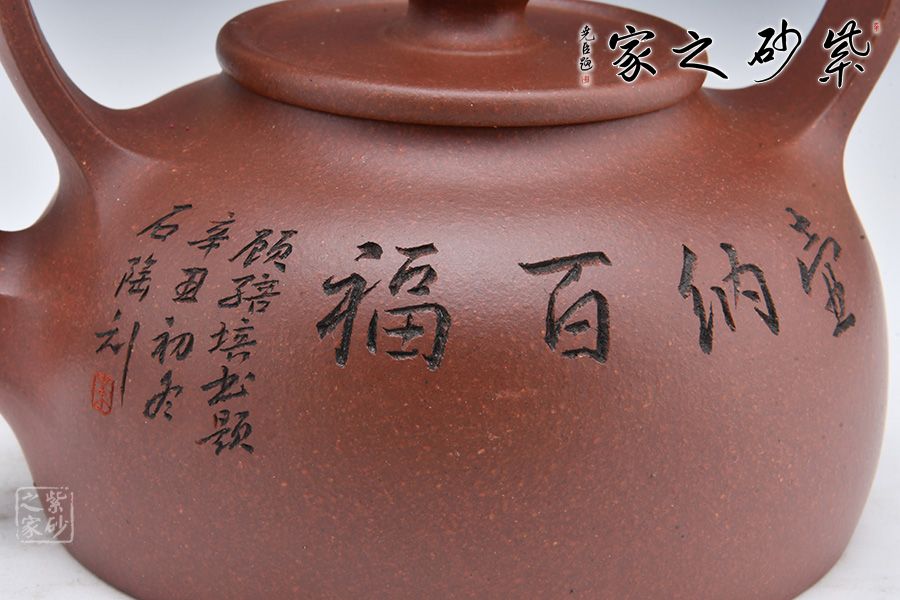 紫砂之家
尧臣题
壶纳百福
顾绍培书题
辛丑初冬
石陶刻
紫砂
之家